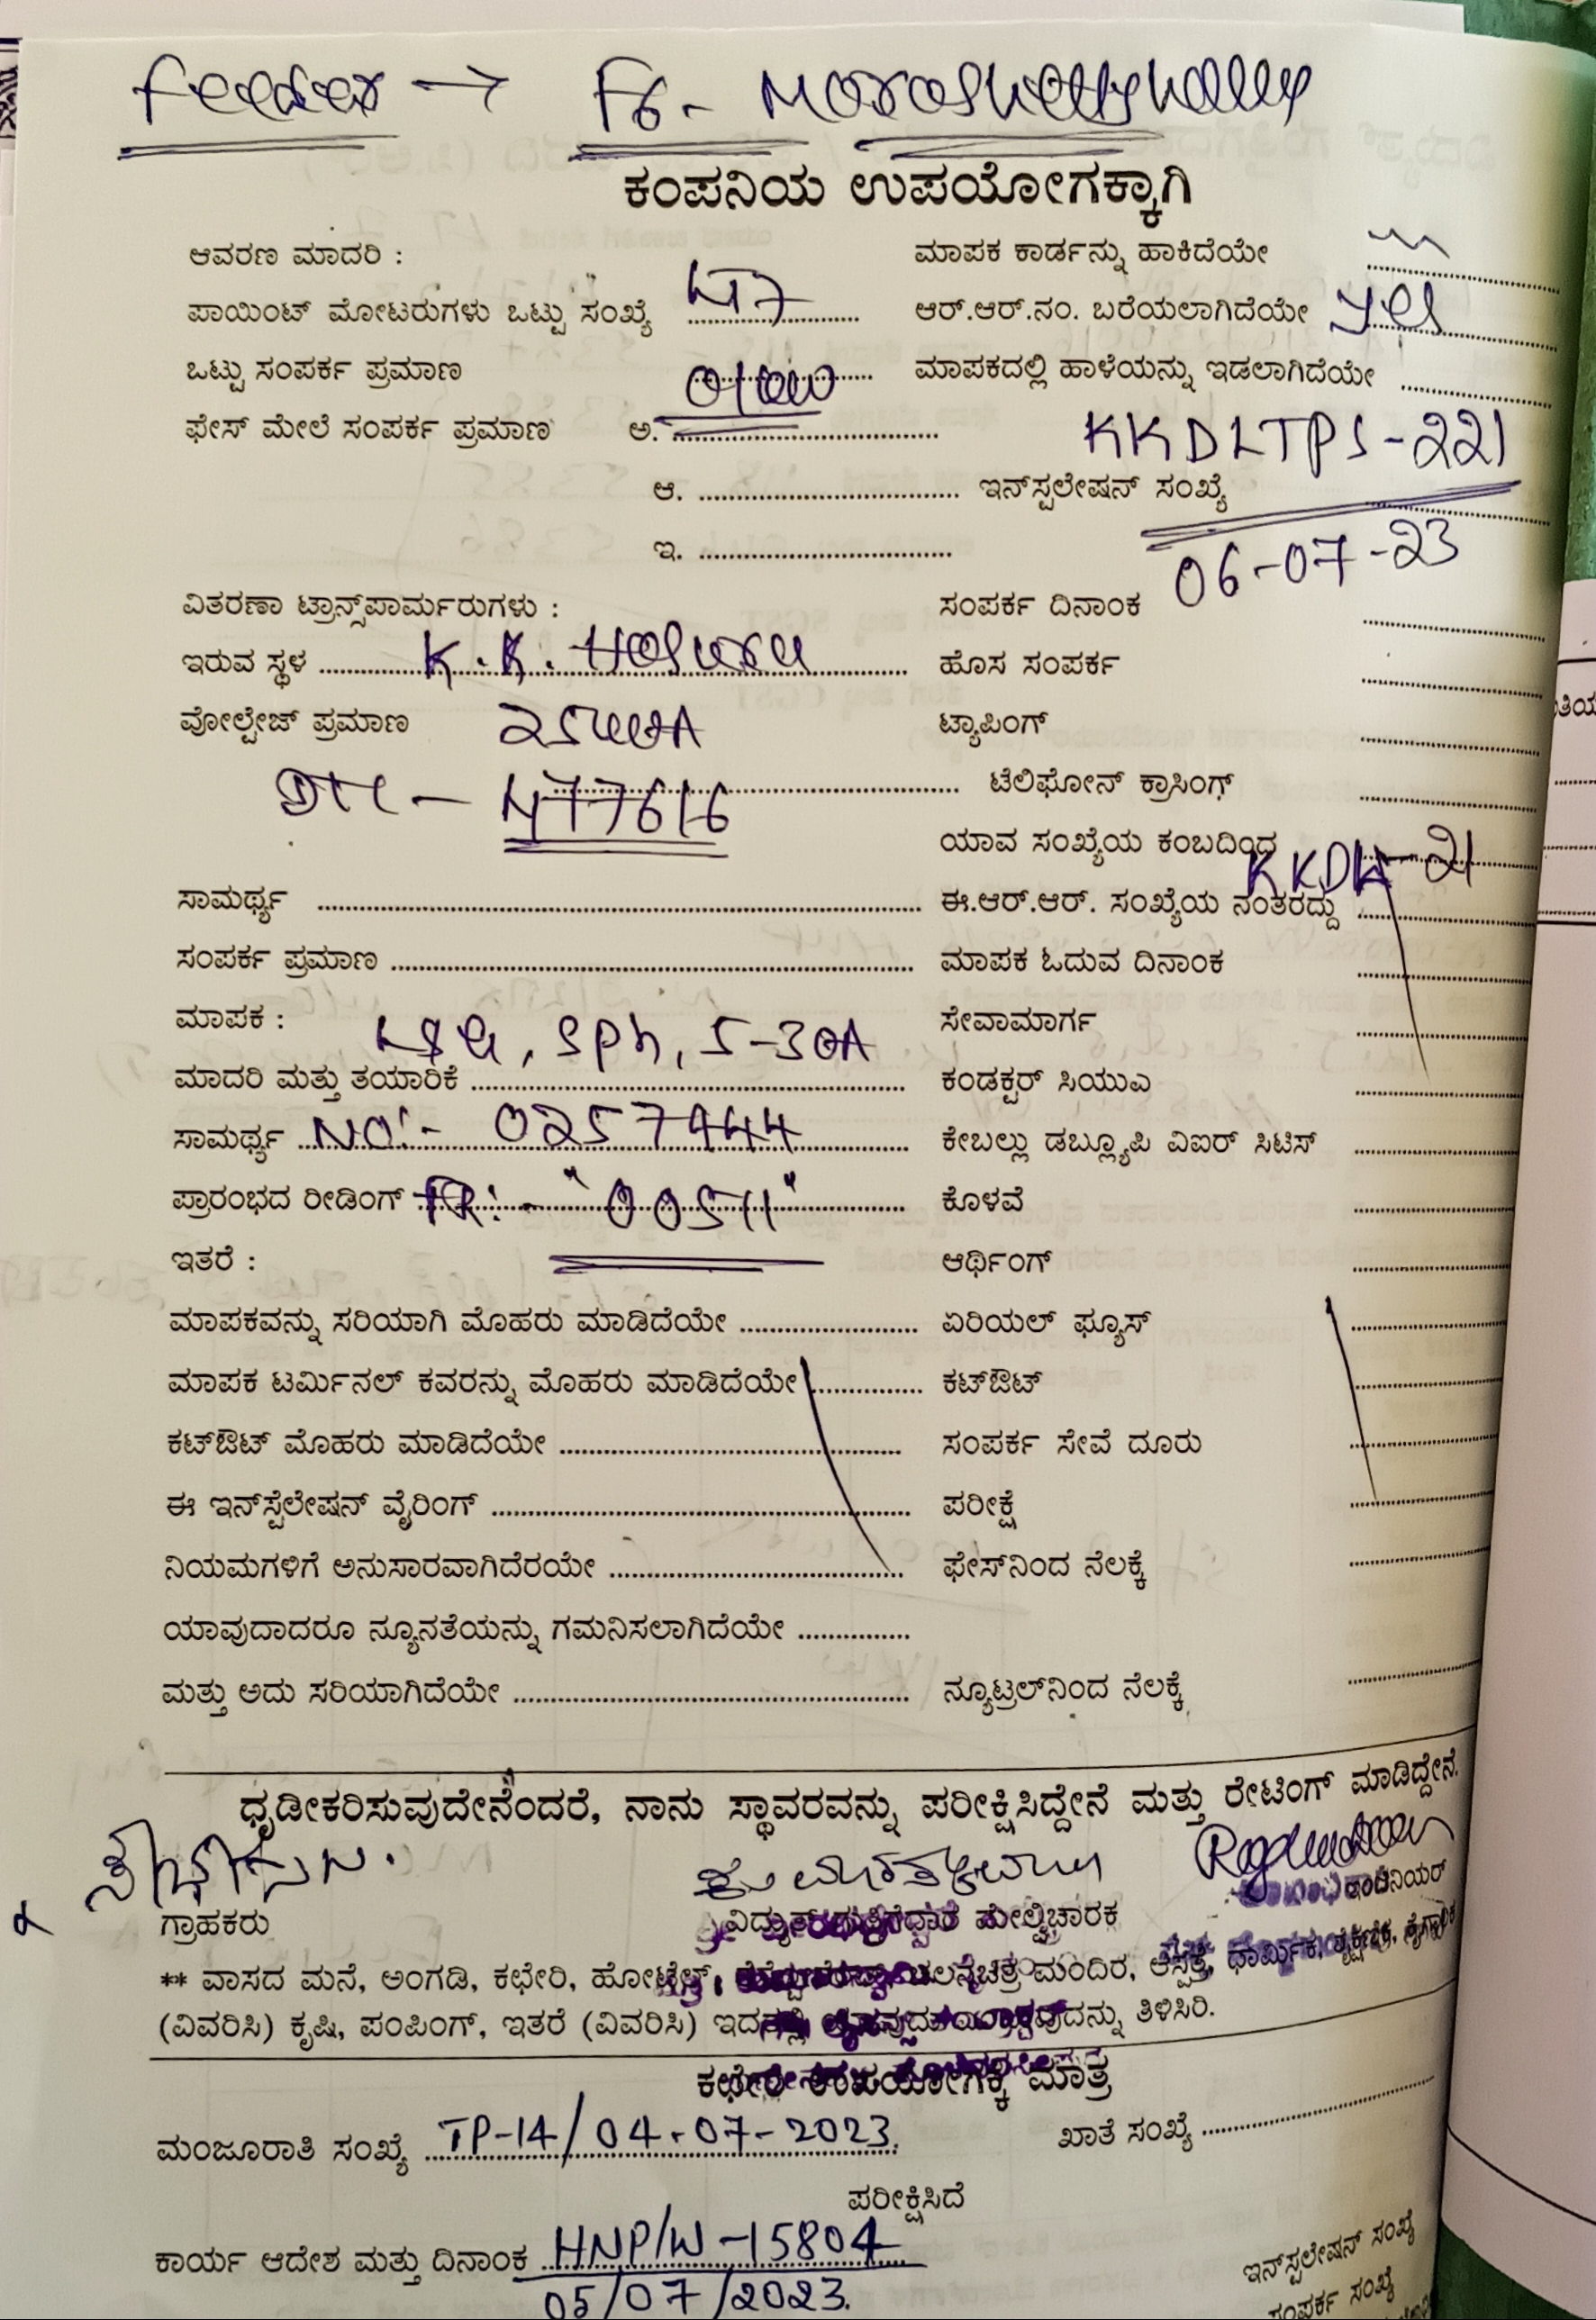 Feeder → F6 - Marashettyhally
ಕಂಪನಿಯ ಉಪಯೋಗಕ್ಕಾಗಿ
ಆವರಣ ಮಾದರಿ : ಮಾಪಕ ಕಾರ್ಡನ್ನು ಹಾಕಿದೆಯೇ
ಪಾಯಿಂಟ್ ಮೋಟರುಗಳು ಒಟ್ಟು ಸಂಖ್ಯೆ ಆರ್.ಆರ್.ನಂ. ಬರೆಯಲಾಗಿದೆಯೇ yes
ಒಟ್ಟು ಸಂಪರ್ಕ ಪ್ರಮಾಣ ಮಾಪಕದಲ್ಲಿ ಹಾಳೆಯನ್ನು ಇಡಲಾಗಿದೆಯೇ
ಫೇಸ್ ಮೇಲೆ ಸಂಪರ್ಕ ಪ್ರಮಾಣ ಅ. KKDLTPS-221
ಆ. ಇನ್‌ಸ್ಟಲೇಷನ್ ಸಂಖ್ಯೆ
ಇ. 06-07-23
ವಿತರಣಾ ಟ್ರಾನ್ಸ್‌ಪಾರ್ಮರುಗಳು : ಸಂಪರ್ಕ ದಿನಾಂಕ
ಇರುವ ಸ್ಥಳ K.K. Hosuru ಹೊಸ ಸಂಪರ್ಕ
ವೋಲ್ಟೇಜ್ ಪ್ರಮಾಣ 25KVA ಟ್ಯಾಪಿಂಗ್
DTC - N77616 ಟೆಲಿಫೋನ್ ಕ್ರಾಸಿಂಗ್
ಯಾವ ಸಂಖ್ಯೆಯ ಕಂಬದಿಂದ
ಸಾಮರ್ಥ್ಯ ಈ.ಆರ್.ಆರ್. ಸಂಖ್ಯೆಯ ನಂತರದ್ದು
ಸಂಪರ್ಕ ಪ್ರಮಾಣ ಮಾಪಕ ಓದುವ ದಿನಾಂಕ
ಮಾಪಕ : L&G, SPh, 5-30A ಸೇವಾಮಾರ್ಗ
ಮಾದರಿ ಮತ್ತು ತಯಾರಿಕೆ ಕಂಡಕ್ಟರ್ ಸಿಯುಎ
ಸಾಮರ್ಥ್ಯ NO:- 0257444 ಕೇಬಲ್ಲು ಡಬ್ಲ್ಯೂಪಿ ವಿಐರ್ ಸಿಟಿಸ್
ಪ್ರಾರಂಭದ ರೀಡಿಂಗ್ "00511" ಕೊಳವೆ
ಇತರೆ : ಆರ್ಥಿಂಗ್
ಮಾಪಕವನ್ನು ಸರಿಯಾಗಿ ಮೊಹರು ಮಾಡಿದೆಯೇ ಏರಿಯಲ್ ಫ್ಯೂಸ್
ಮಾಪಕ ಟರ್ಮಿನಲ್ ಕವರನ್ನು ಮೊಹರು ಮಾಡಿದೆಯೇ ಕಟ್‌ಔಟ್
ಕಟ್‌ಔಟ್ ಮೊಹರು ಮಾಡಿದೆಯೇ ಸಂಪರ್ಕ ಸೇವೆ ದೂರು
ಈ ಇನ್‌ಸ್ಟೆಲೇಷನ್ ವೈರಿಂಗ್ ಪರೀಕ್ಷೆ
ನಿಯಮಗಳಿಗೆ ಅನುಸಾರವಾಗಿದೆರಯೇ ಫೇಸ್‌ನಿಂದ ನೆಲಕ್ಕೆ
ಯಾವುದಾದರೂ ನ್ಯೂನತೆಯನ್ನು ಗಮನಿಸಲಾಗಿದೆಯೇ
ಮತ್ತು ಅದು ಸರಿಯಾಗಿದೆಯೇ ನ್ಯೂಟ್ರಲ್‌ನಿಂದ ನೆಲಕ್ಕೆ
ಧೃಡೀಕರಿಸುವುದೇನೆಂದರೆ, ನಾನು ಸ್ಥಾವರವನ್ನು ಪರೀಕ್ಷಿಸಿದ್ದೇನೆ ಮತ್ತು ರೇಟಿಂಗ್ ಮಾಡಿದ್ದೇನೆ.
ಗ್ರಾಹಕರು ವಿದ್ಯುತ್ ಗುತ್ತಿಗೆದ್ದಾರ ಮೇಲ್ವಿಚಾರಕ ಇಂಜಿನಿಯರ್
** ವಾಸದ ಮನೆ, ಅಂಗಡಿ, ಕಛೇರಿ, ಹೋಟೆಲ್, ಚಲನಚಿತ್ರ ಮಂದಿರ, ಆಸ್ಪತ್ರೆ, ಧಾರ್ಮಿಕ, ಶೈಕ್ಷಣಿಕ,
(ವಿವರಿಸಿ) ಕೃಷಿ, ಪಂಪಿಂಗ್, ಇತರೆ (ವಿವರಿಸಿ) ಇದರಲ್ಲಿ ತಿಳಿಸಿರಿ.
ಕಛೇರಿ ಉಪಯೋಗಕ್ಕೆ ಮಾತ್ರ
ಮಂಜೂರಾತಿ ಸಂಖ್ಯೆ TP-14/04-07-2023. ಖಾತೆ ಸಂಖ್ಯೆ
ಪರೀಕ್ಷಿಸಿದೆ
ಕಾರ್ಯ ಆದೇಶ ಮತ್ತು ದಿನಾಂಕ HNP/W-15804 ಇನ್‌ಸ್ಟಲೇಷನ್ ಸಂಖ್ಯೆ
05/07/2023. ಸಂಪರ್ಕ ಸಂಖ್ಯೆ